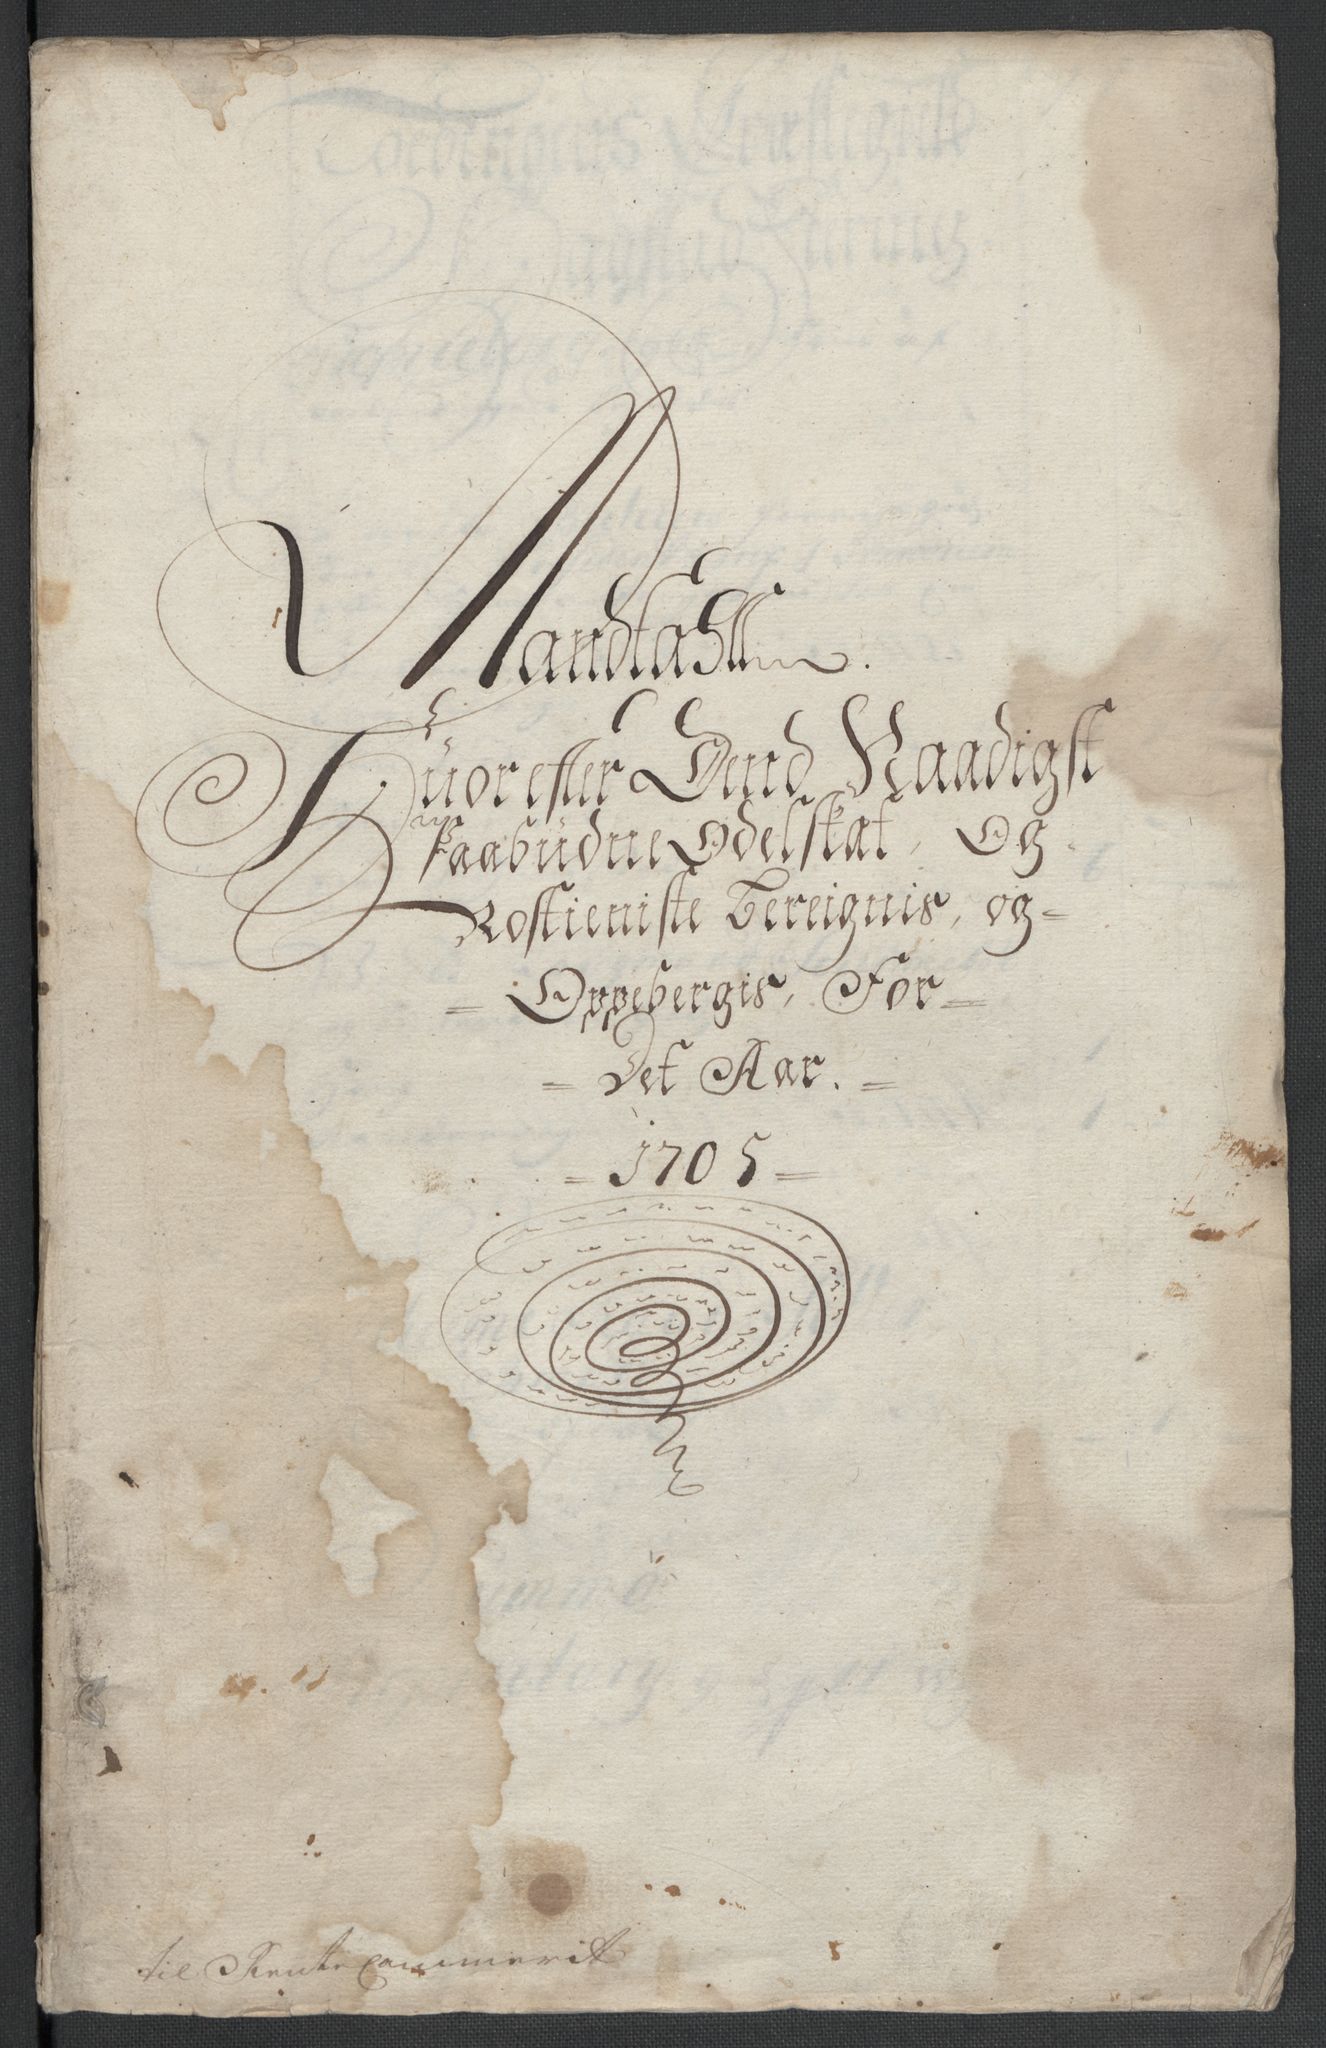 Mandtahll
Huorefter Dend Naadigst
paabudne Odelskat, Og
Rostieniste Bereignis, og
Oppebergis, For
Det Aar.
1705
til Rente Cammerit